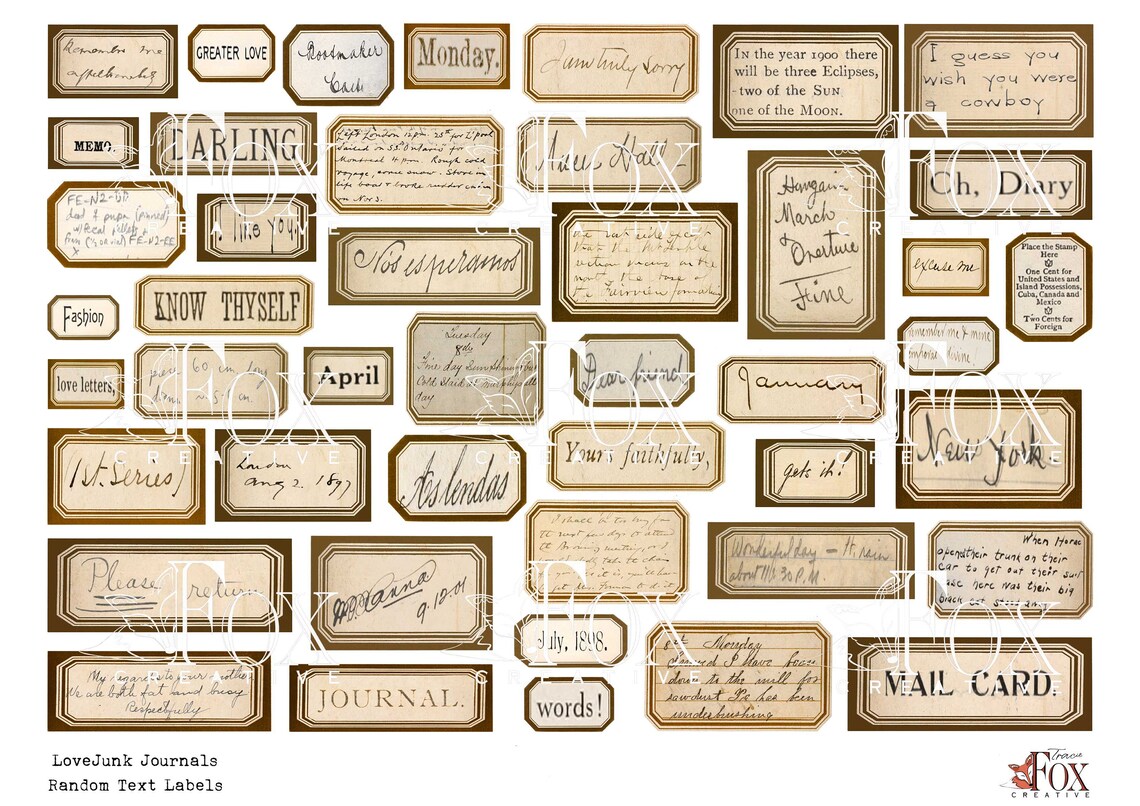 Remember me
affectionately
GREATER LOVE
Bootmaker
Cash
Monday.
I am truly sorry
In the year 1900 there
will be three Eclipses,
-two of the Sun
one of the Moon.
I guess you
wish you were
a cowboy
MEMO.
DARLING
Left London 12pm. 25th for L'pool
Sailed on SS. Ontario for
Montreal 4 pm. Rough cold
voyage, some snow. Store in
life boat & broke rudder chain
on Nov 3.
Hall
Hungarian
March
& Overture
Fine
Oh, Diary
FE-N2-DD
dead & pupa (pinned)
w/fecal pellets
from FE-N2-EE
X
I like you,
Nos esperamos
excuse me
Place the Stamp
Here
One Cent for
United States and
Island Possessions,
Cuba, Canada and
Mexico
Two Cents for
Foreign
Fashion
KNOW THYSELF
Tuesday
8th
Fine day Sun Shining but
Cold Staid at all
day
remember me & mine
divine
love letters,
60 cm
April
Dear friend
January
(1st. Series)
London
Aug 2. 1897
Aslendas
Yours faithfully,
gets it!
New York.
Please
return
Hanna
9.12.01
I shall be too busy for
the next few days to attend
the meetings or
Wonderful day — It. rain
about 11 1/2 30 P.M.
When Horac
opened their trunk on their
car to get out their suit
case here was their big
black cat
July, 1898.
8th Monday
I have been
down to the mill for
sawdust Pa has been
underbrushing
My regards to your mother
We are both fat and busy
Respectfully
JOURNAL.
words!
MAIL CARD.
LoveJunk Journals
Random Text Labels
Tracie
FOX
CREATIVE